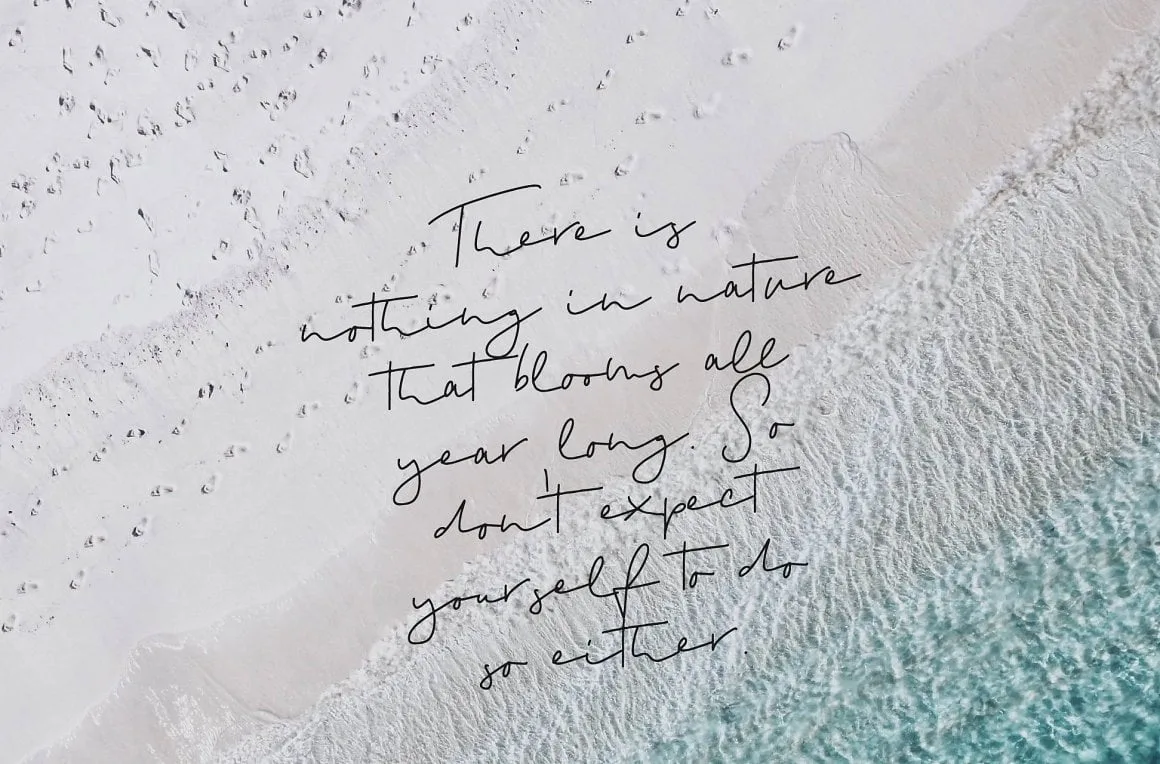 There is
nothing in nature
that blooms all
year long. So
don't expect
yourself to do
so either.